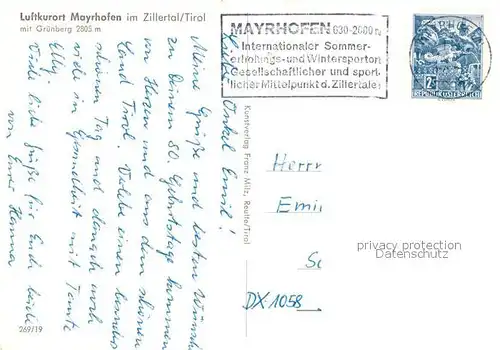 Luftkurort Mayrhofen im Zillertal/Tirol
mit Grünberg 2805 m
MAYRHOFEN 630-2600 m
Internationaler Sommer-
erholungs- und Wintersportort
Gesellschaftlicher und sport-
licher Mittelpunkt d. Zillertales
REPUBLIK ÖSTERREICH
Lieber Onkel Emil!
Meine Grüße und besten Wünsche
zu Deinem 80. Geburtstage kommen
von Herzen und aus dem schönen
Land Tirol. Verlebe einen
schönen Tag und danach noch
viele in Gesundheit mit Tante
Elly.
Viele liebe Grüße für Euch beide
von Eurer Hanna
Kunstverlag Franz Milz, Reutte/Tirol
Herrn
Emi
Sc
DX 1058
269/19
privacy protection
Datenschutz